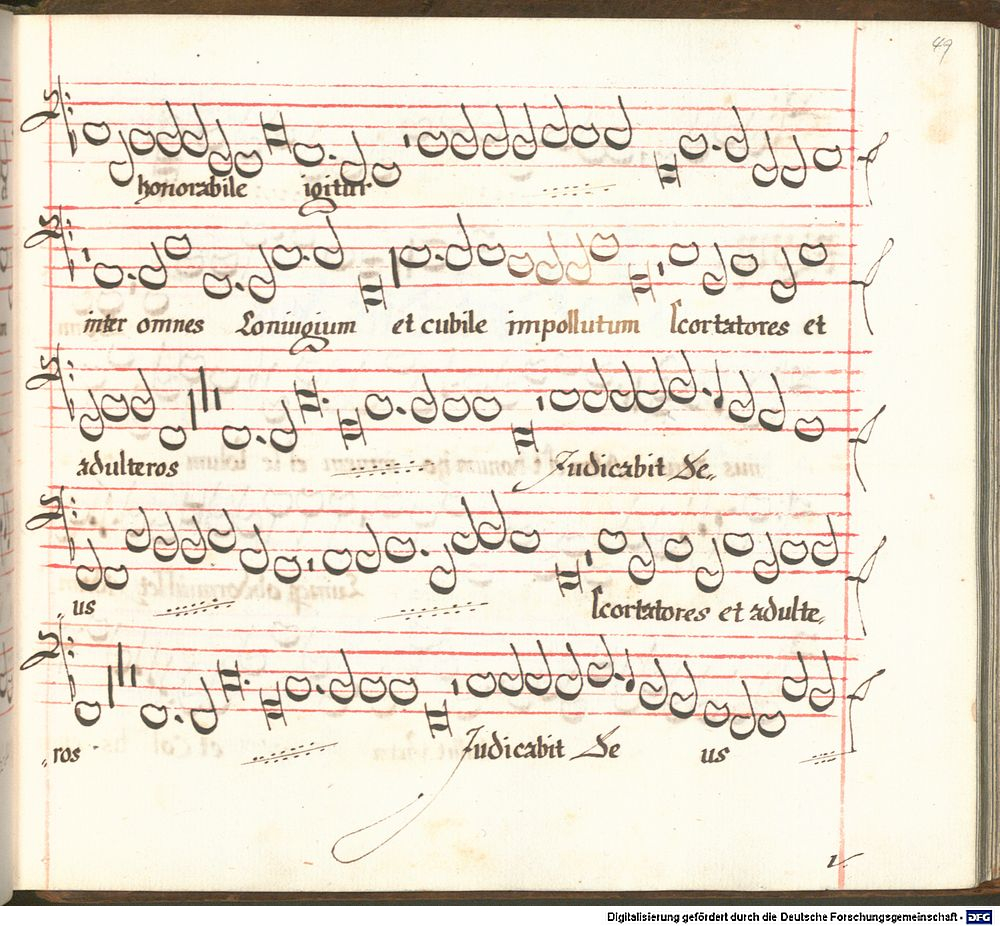 49
honorabile igitur
inter omnes Coniugium et cubile impollutum scortatores et
adulteros Judicabit De„
„us scortatores et adulte„
„ros Judicabit De us
Digitalisierung gefördert durch die Deutsche Forschungsgemeinschaft - DFG